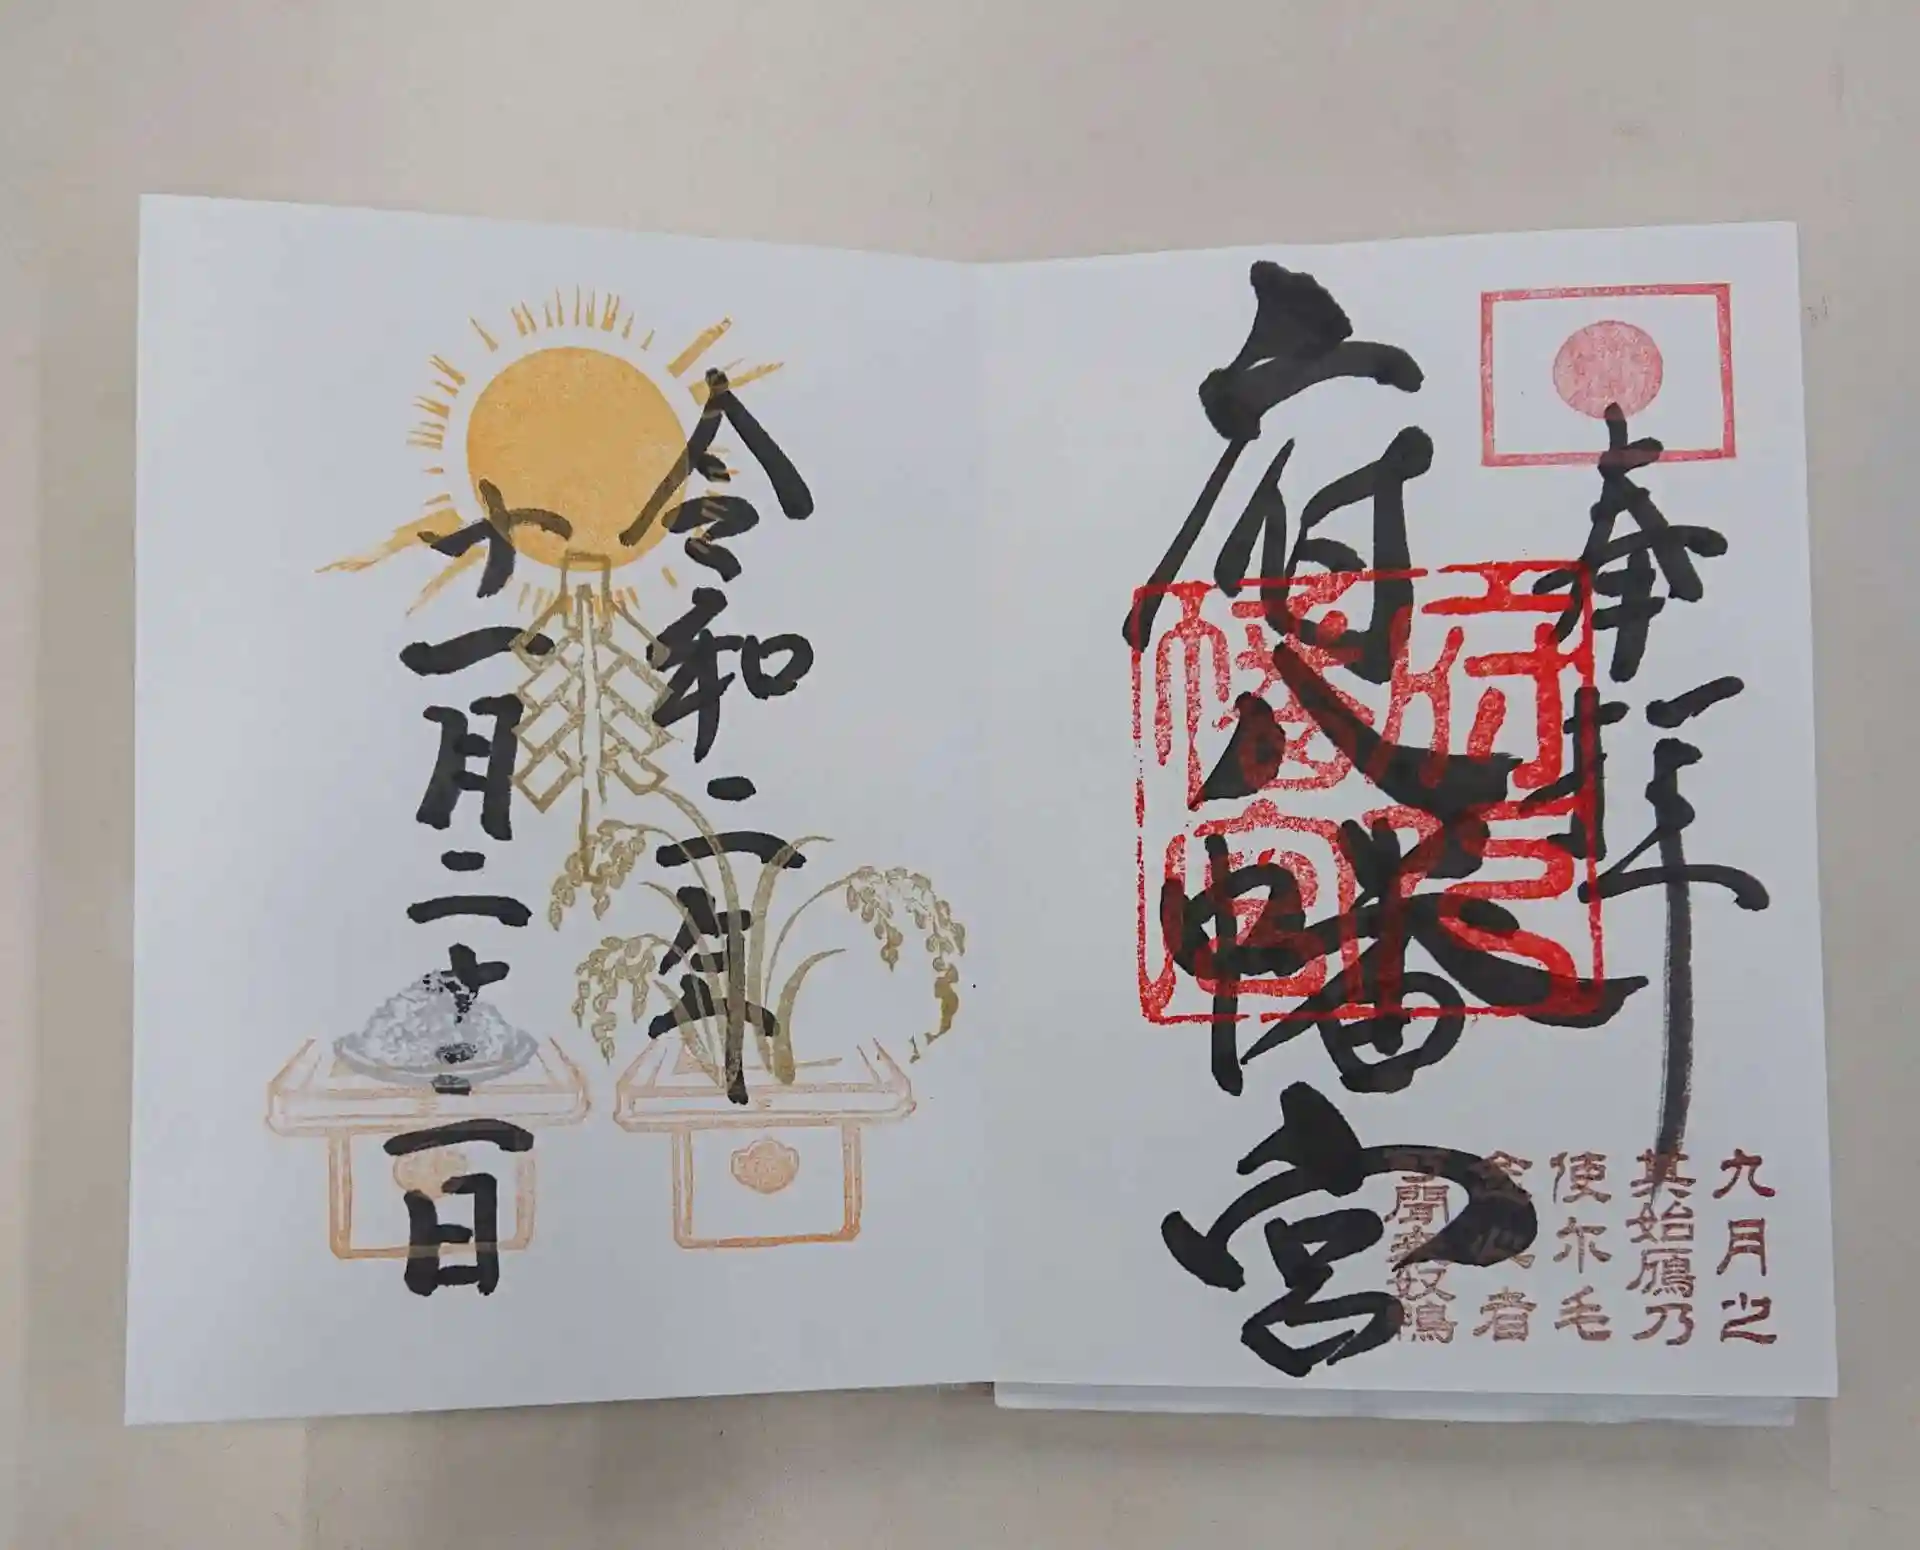 奉拝
府八幡宮
府八
幡宮
九月之
其始鴈乃
使尓毛
念心者
聞来奴鴨
令和二年
十一月二十三日